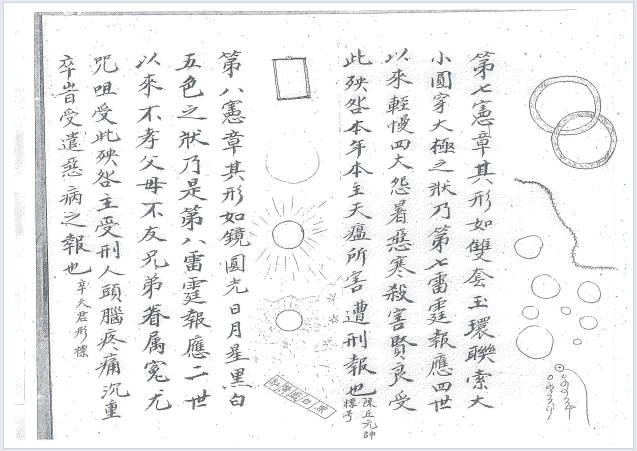 第七憲章其形如雙套玉環聯索大
小圓穿大極之狀乃第七雷霆報應四世
以來輕慢四大怨暑惡寒殺害賢良受
此殃咎本年本主天瘟所害遭刑報也
陳丘元帥
標号
第八憲章其形如鏡圓光日月星黑白
五色之狀乃是第八雷霆報應二世
以來不孝父母不友兄弟眷属寃尤
咒咀受此殃咎主受刑人頭腦疼痛沉重
卒旹受遣惡病之報也
辛天君形標